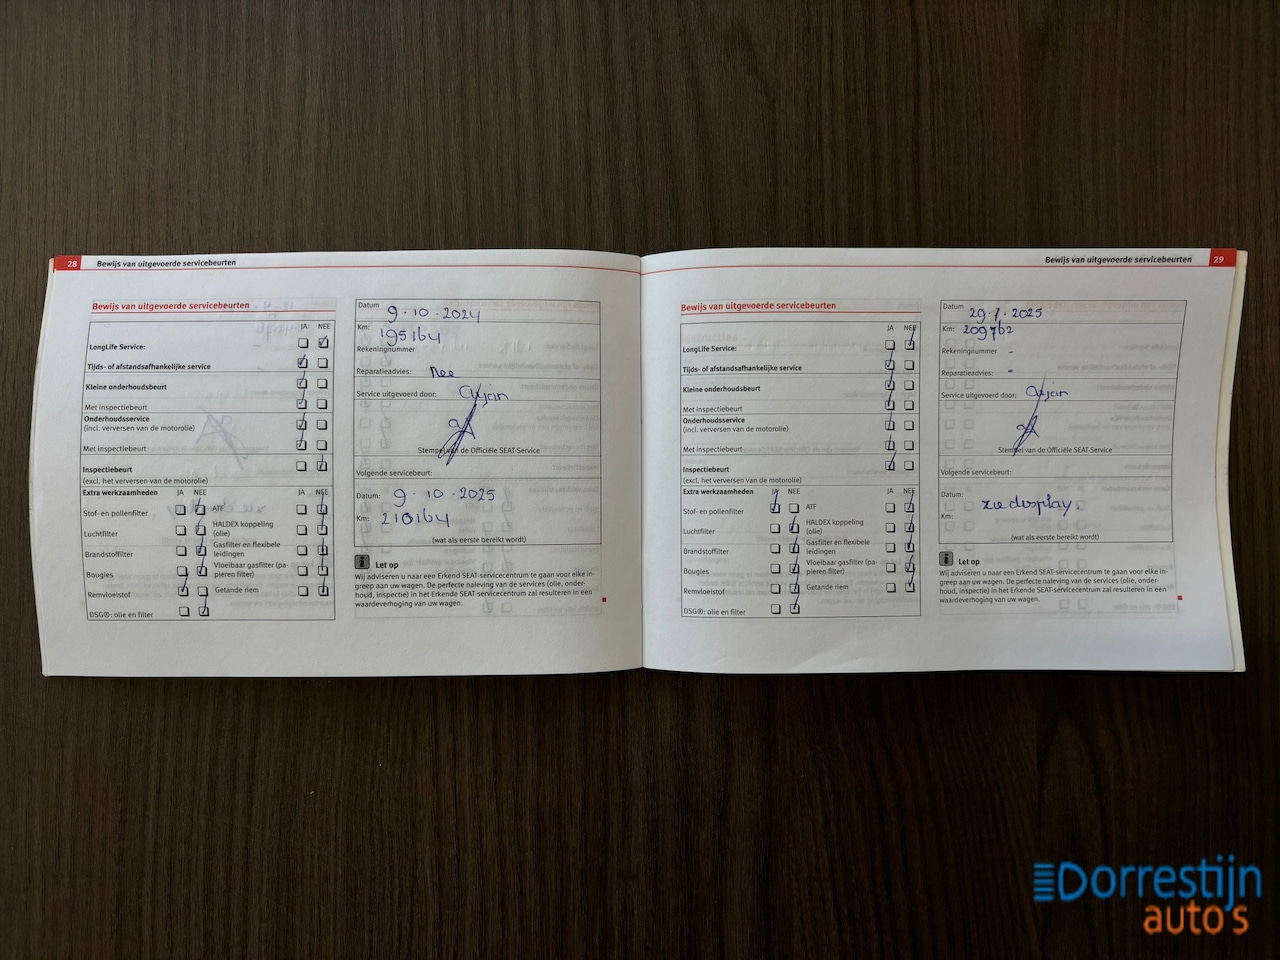 28 Bewijs van uitgevoerde servicebeurten
Bewijs van uitgevoerde servicebeurten
JA NEE
LongLife Service:
Tijds- of afstandsafhankelijke service
Kleine onderhoudsbeurt
Met inspectiebeurt
Onderhoudsservice
(incl. verversen van de motorolie)
Met inspectiebeurt
Inspectiebeurt
(excl. het verversen van de motorolie)
Extra werkzaamheden JA NEE JA NEE
Stof- en pollenfilter ATF
Luchtfilter HALDEX koppeling
(olie)
Brandstoffilter Gasfilter en flexibele
leidingen
Bougies Vloeibaar gasfilter (pa-
pieren filter)
Remvloeistof Getande riem
DSG®: olie en filter
Datum 9-10-2024
Km: 195164
Rekeningnummer
Reparatieadvies: Nee
Service uitgevoerd door: Arjan
Stempel van de Officiële SEAT-Service
Volgende servicebeurt:
Datum: 9-10-2025
Km: 210164
(wat als eerste bereikt wordt)
Let op
Wij adviseren u naar een Erkend SEAT-servicecentrum te gaan voor elke in-
greep aan uw wagen. De perfecte naleving van de services (olie, onder-
houd, inspectie) in het Erkende SEAT-servicecentrum zal resulteren in een
waardeverhoging van uw wagen.
Bewijs van uitgevoerde servicebeurten 29
Bewijs van uitgevoerde servicebeurten
JA NEE
LongLife Service:
Tijds- of afstandsafhankelijke service
Kleine onderhoudsbeurt
Met inspectiebeurt
Onderhoudsservice
(incl. verversen van de motorolie)
Met inspectiebeurt
Inspectiebeurt
(excl. het verversen van de motorolie)
Extra werkzaamheden JA NEE JA NEE
Stof- en pollenfilter ATF
Luchtfilter HALDEX koppeling
(olie)
Brandstoffilter Gasfilter en flexibele
leidingen
Bougies Vloeibaar gasfilter (pa-
pieren filter)
Remvloeistof Getande riem
DSG®: olie en filter
Datum 29-7-2025
Km: 209762
Rekeningnummer -
Reparatieadvies: -
Service uitgevoerd door: Arjan
Stempel van de Officiële SEAT-Service
Volgende servicebeurt:
Datum: zie display.
Km:
(wat als eerste bereikt wordt)
Let op
Wij adviseren u naar een Erkend SEAT-servicecentrum te gaan voor elke in-
greep aan uw wagen. De perfecte naleving van de services (olie, onder-
houd, inspectie) in het Erkende SEAT-servicecentrum zal resulteren in een
waardeverhoging van uw wagen.
Dorrestijn
auto's